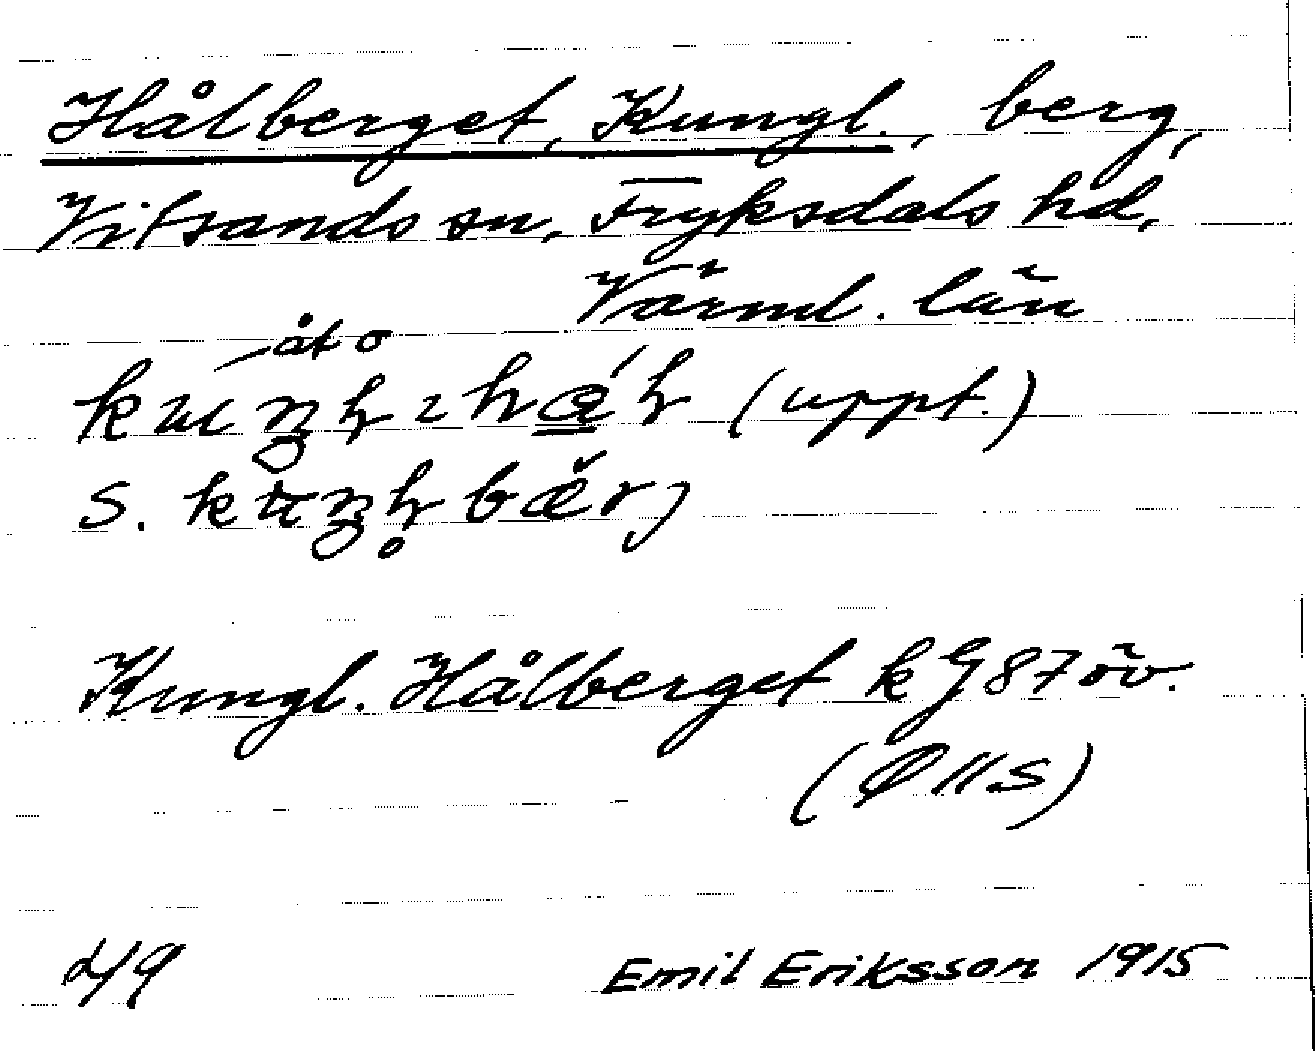 Hålberget, Kungl., berg,
Vitsands sn, Fryksdals hd,
Värml. län
åt o
(uppt.)
s.
Kungl. Hålberget k G 87 öv.
49 Emil Eriksson 1915